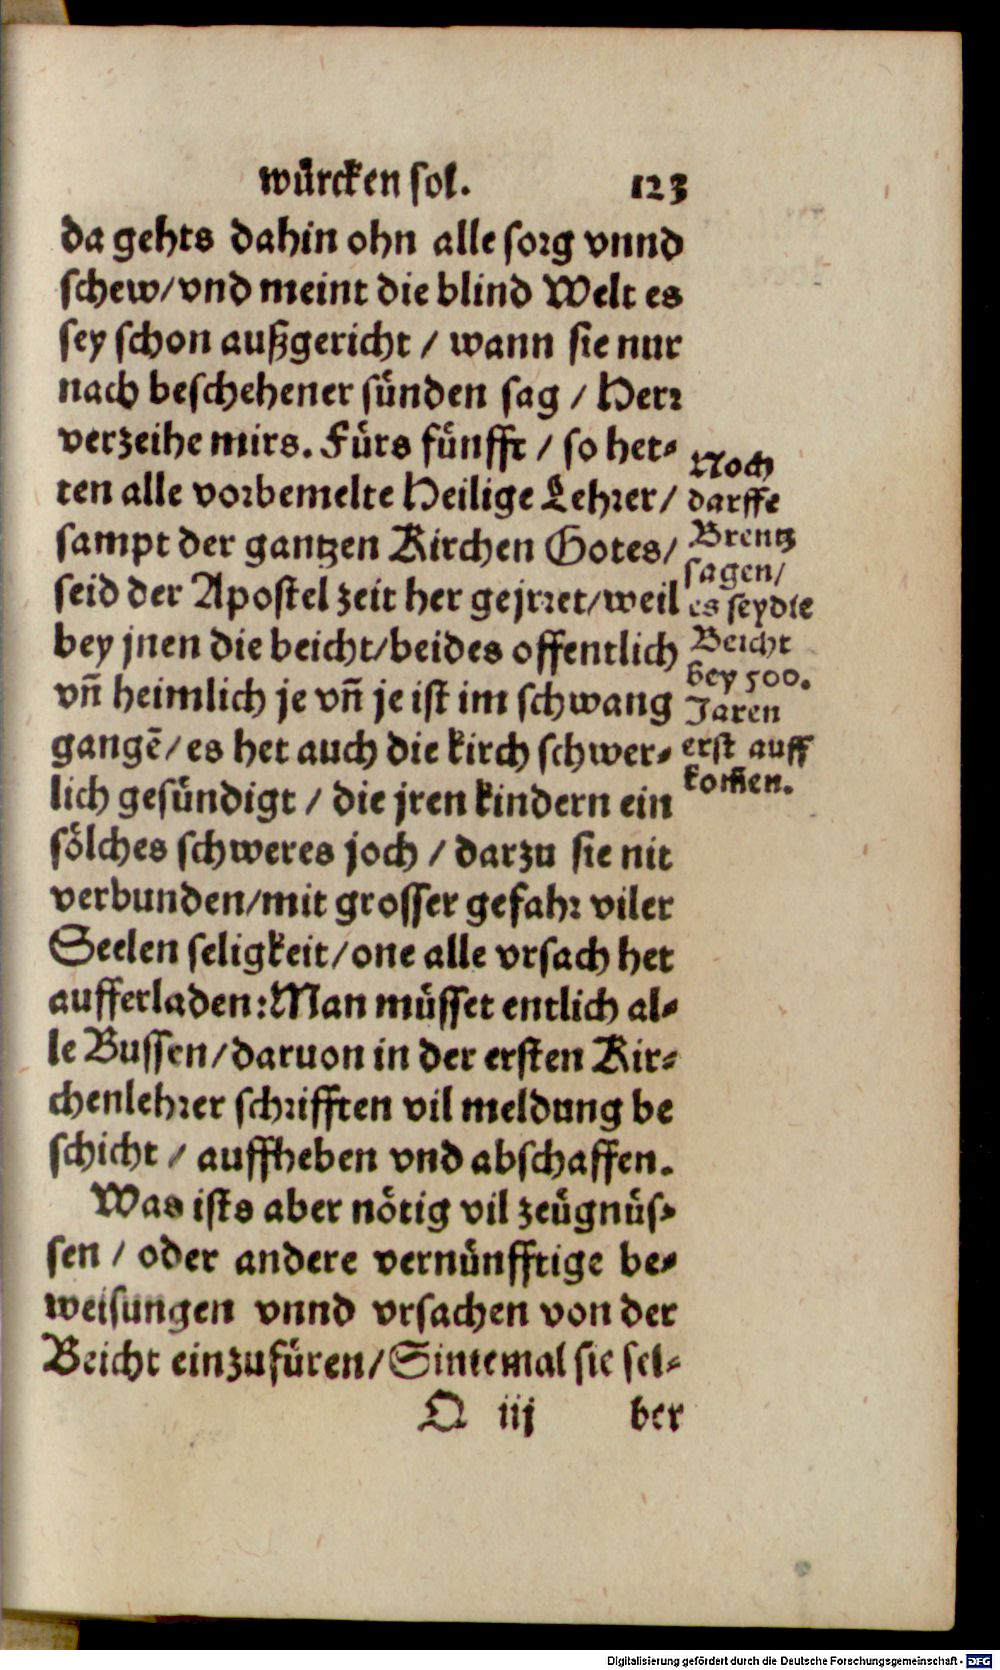 würcken sol. 123
da gehts dahin ohn alle sorg vnnd
schew/vnd meint die blind Welt es
sey schon außgericht / wann sie nur
nach beschehener sünden sag / Herr
verzeihe mirs. Fürs fünfft / so het-
ten alle vorbemelte Heilige Lehrer/
sampt der gantzen Kirchen Gotes/
seid der Apostel zeit her gejrret/weil
bey jnen die beicht/beides offentlich
vñ heimlich je vñ je ist im schwang
gangē/es het auch die kirch schwer-
lich gesündigt / die jren kindern ein
sölches schweres joch / darzu sie nit
verbunden/mit grosser gefahr viler
Seelen seligkeit/one alle vrsach het
aufferladen:Man müsset entlich al-
le Bussen/daruon in der ersten Kir-
chenlehrer schrifften vil meldung be
schicht / auffheben vnd abschaffen.
Was ists aber nötig vil zeügnüs-
sen / oder andere vernünfftige be-
weisungen vnnd vrsachen von der
Beicht einzufüren/Sintemal sie sel-
O iij ber
Noch
darffe
Brentz
sagen/
es seydie
Beicht
bey 500.
Jaren
erst auff
kom̄en.
Digitalisierung gefördert durch die Deutsche Forschungsgemeinschaft - DFG